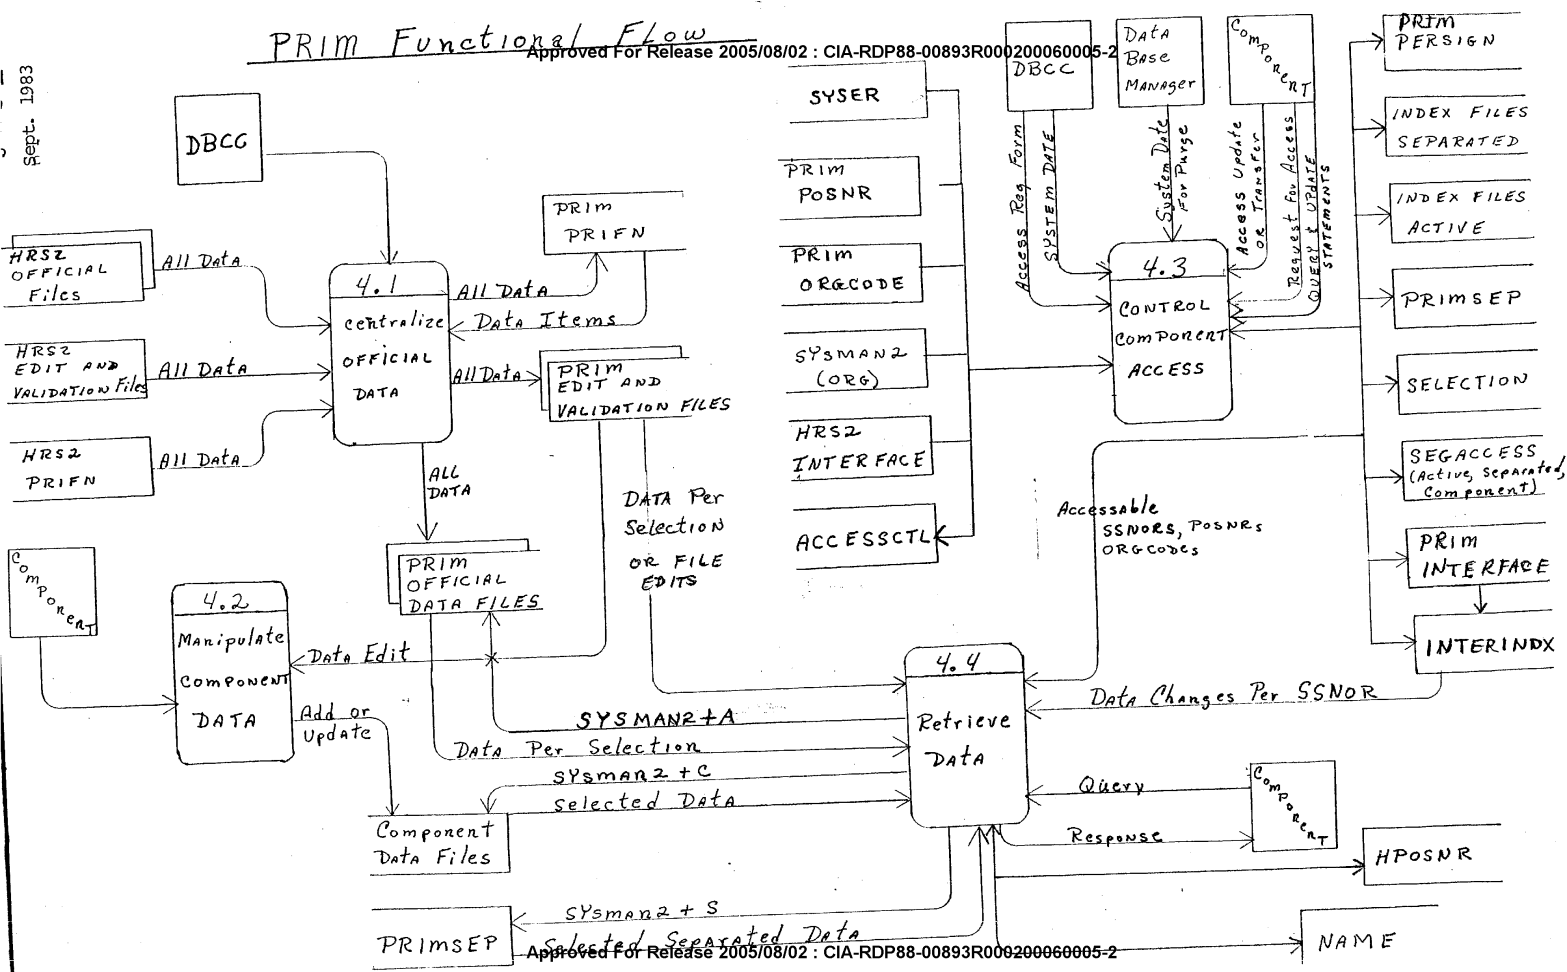 PRIM Functional Flow
Approved For Release 2005/08/02 : CIA-RDP88-00893R000200060005-2
Sept. 1983
DBCG
HRS2
OFFICIAL
Files
All Data
HRS2
EDIT AND
VALIDATION Files
All Data
HRS2
PRIFN
All Data
4.1
Centralize
OFFICIAL
DATA
PRIM
PRIFN
All DATA
Data Items
All Data
PRIM
EDIT AND
VALIDATION FILES
ALL
DATA
PRIM
OFFICIAL
DATA FILES
DATA Per
Selection
OR FILE
EDITS
Component
4.2
Manipulate
Component
DATA
Data Edit
Add or
Update
Component
Data Files
SYSMAN2+A
Data Per Selection
SYSMAN2 + C
Selected Data
4.4
Retrieve
Data
SYSMAN2 + S
Selected Separated Data
PRIMSEP
SYSER
PRIM
POSNR
PRIM
ORGCODE
SYSMAN2
(ORG)
HRS2
INTERFACE
ACCESSCTL
DBCC
DATA
Base
Manager
Component
Access Req Form
SYSTEM DATE
System Date
For Purge
Access Update
OR Transfer
Request for Access
QUERY & UPDATE
STATEMENTS
4.3
CONTROL
Component
ACCESS
Accessable
SSNORS, POSNRs
ORGCODEs
PRIM
PERSIGN
INDEX FILES
SEPARATED
INDEX FILES
ACTIVE
PRIMSEP
SELECTION
SEGACCESS
(Active, Separated,
Component)
PRIM
INTERFACE
INTERINDX
Data Changes Per SSNOR
Query
Response
Component
HPOSNR
NAME
Approved For Release 2005/08/02 : CIA-RDP88-00893R000200060005-2